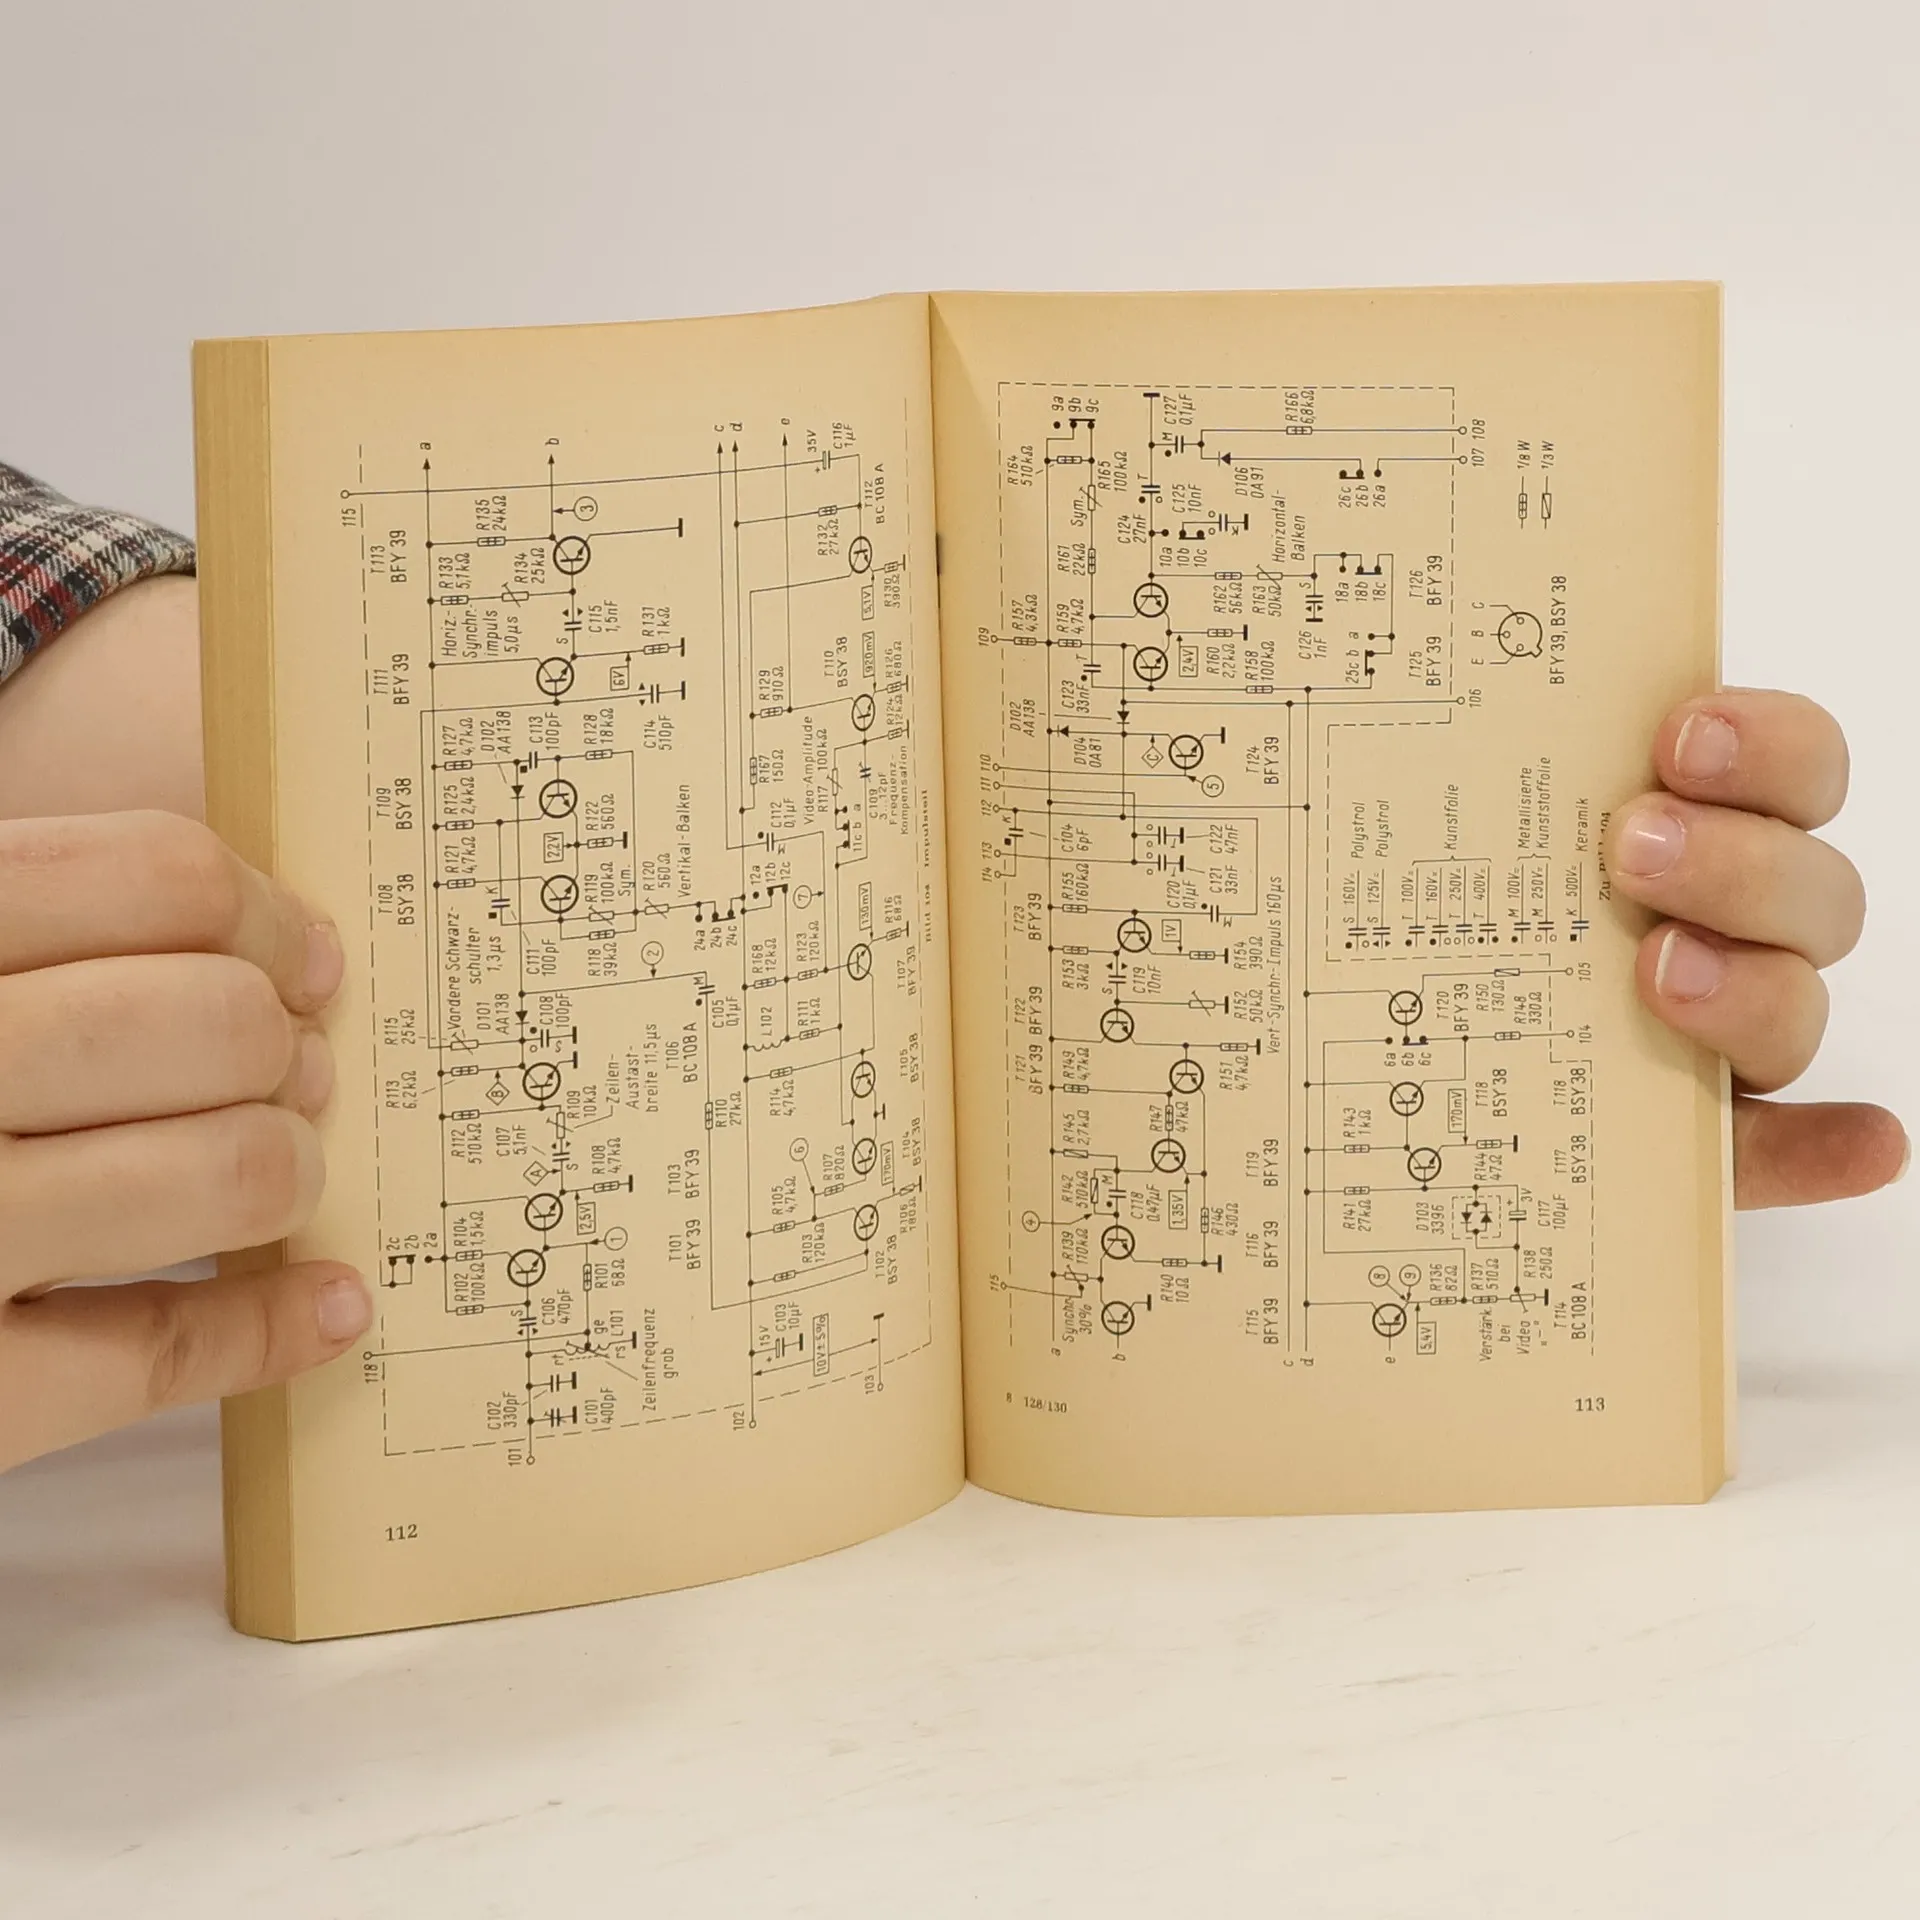 115
T113
BFY 39
T111
BFY 39
T109
BSY 38
T108
BSY 38
a
b
c
d
e
R135
24kΩ
3
R133
5,1kΩ
R134
25kΩ
Horiz.-
Synchr.-
impuls
5,0µs
S
C115
1,5nF
R131
1kΩ
6V
C114
510pF
R127
4,7kΩ
D102
AA138
C113
100pF
R128
18kΩ
R125
2,4kΩ
R121
4,7kΩ
2,2V
R122
560Ω
K
R119
100kΩ
Sym.
R120
560Ω
Vertikal-Balken
Vordere Schwarz-
schulter
1,3µs
C111
100pF
R118
39kΩ
2
R115
25kΩ
D101
AA138
C108
100pF
R113
6,2kΩ
B
R112
510kΩ
C107
5,1nF
A
S
R109
10kΩ
Zeilen-
Austast-
breite 11,5µs
R108
4,7kΩ
2,5V
1
2c
2b
2a
R104
1,5kΩ
R102
100kΩ
S
C106
470pF
R101
68Ω
L101
ge
rt
rs
118
C102
330pF
C101
400pF
Zeilenfrequenz
grob
101
T106
BC 108A
T103
BFY 39
T101
BFY 39
35V
C116
1µF
T112
BC 108 A
R132
27kΩ
R130
390Ω
5,1V
R129
910Ω
T110
BSY 38
920mV
R126
680Ω
R124
12kΩ
R167
150Ω
Video-Amplitude
R117 100kΩ
C109
3...12pF
Frequenz-
Kompensation
11c b a
C112
0,1µF
12a
12b
12c
24a
24b
24c
7
130mV
R116
68Ω
M
C105
0,1µF
R168
12kΩ
R123
120kΩ
T107
BFY 39
L102
R111
1kΩ
R110
27kΩ
R114
4,7kΩ
T105
BSY 38
6
R107
820Ω
T104
BSY 38
170mV
R105
4,7kΩ
R103
120kΩ
R106
180Ω
T102
BSY 38
15V
C103
10µF
10V±5%
102
103
Bild 104 Impulsteil
112
R164
510kΩ
9a
9b
9c
R165
100kΩ
Sym.
M
C127
0,1µF
R166
6,8kΩ
108
107
D106
OA91
26c
26b
26a
T
C125
10nF
C124
27nF
10a
10b
10c
R161
22kΩ
Horizontal-
Balken
R162
56kΩ
R163
50kΩ
S
C126
1nF
18a
18b
18c
25c b a
109
R157
4,3kΩ
R159
4,7kΩ
T
C123
33nF
2,4V
R160
2,2kΩ
R158
100kΩ
T126
BFY 39
T125
BFY 39
106
D102
AA138
D104
OA81
C
5
T124
BFY 39
110
111
112
113
114
K
C104
6pF
C120
0,1µF
C122
47nF
C121
33nF
T123
BFY39
R155
160kΩ
R153
3kΩ
S
C119
10nF
1V
R154
390Ω
T122
BFY 39
R152
50kΩ
Vert-Synchr-Impuls 160µs
T121
BFY 39
R149
4,7kΩ
R151
4,7kΩ
R145
2,7kΩ
R147
47kΩ
R142
510kΩ
4
M
C118
0,47µF
1,35V
R146
430Ω
R139
110kΩ
R140
10Ω
115
Synchr.
30%
T119
BFY 39
T116
BFY 39
T115
BFY 39
a
b
c
d
e
1/8W
1/3W
E B C
BFY 39, BSY 38
S 160V= Polystrol
S 125V= Polystrol
T 100V=
T 160V=
T 250V=
T 400V=
Kunstfolie
M 100V=
M 250V=
Metallisierte
Kunststoffolie
K 500V= Keramik
Zu Bild 104
105
104
T120
BFY 39
R150
130Ω
R148
330Ω
6a
6b
6c
R143
1kΩ
170mV
T118
BSY 38
T118
BSY 38
R144
47Ω
T117
BSY 38
R141
27kΩ
D103
3396
3V
C117
100µF
8
9
R136
82Ω
R137
510Ω
R138
250Ω
5,4V
Verstärk.
bei
Video
"–"
T114
BC 108 A
8 128/130
113